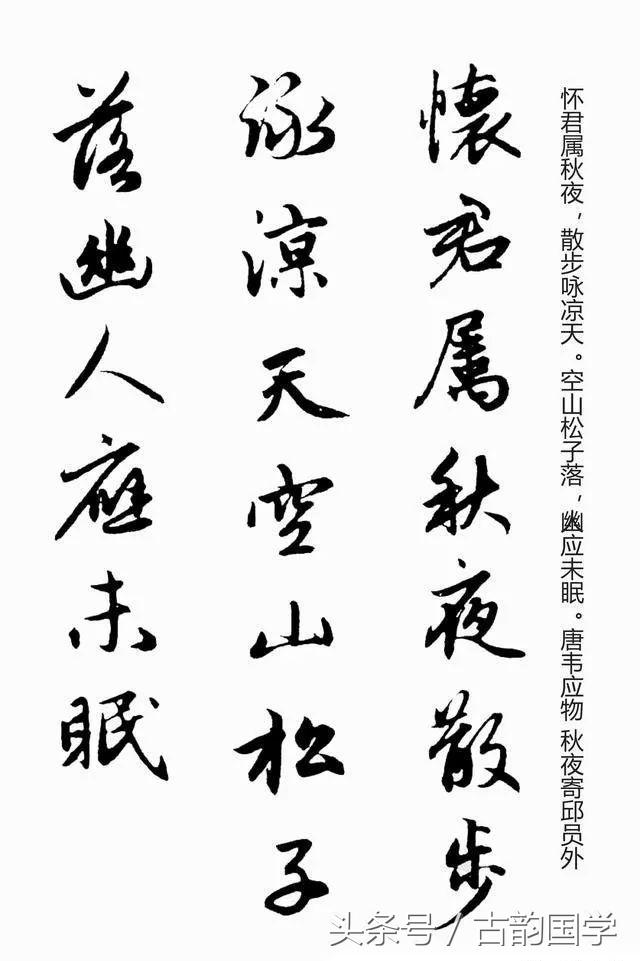 怀君属秋夜，散步咏凉天。空山松子落，幽人应未眠。唐韦应物 秋夜寄邱员外
懷君属秋夜散步
詠涼天空山松子
落幽人應未眠
头条号／古韵国学